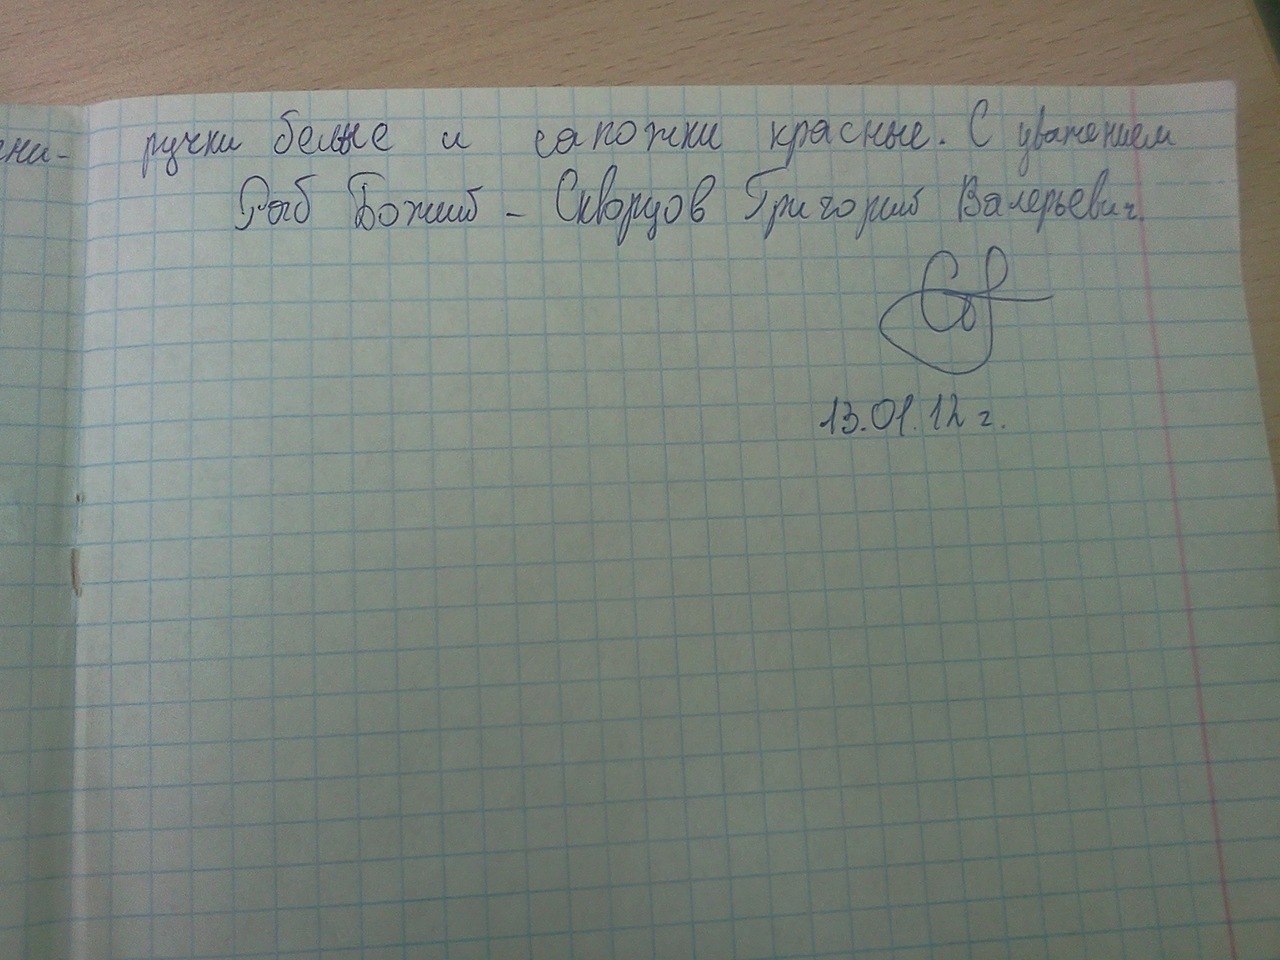 ени-
ручки белые и сапожки красные. С уважением
Раб Божий – Скворцов Григорий Валерьевич.
13.01.12 г.